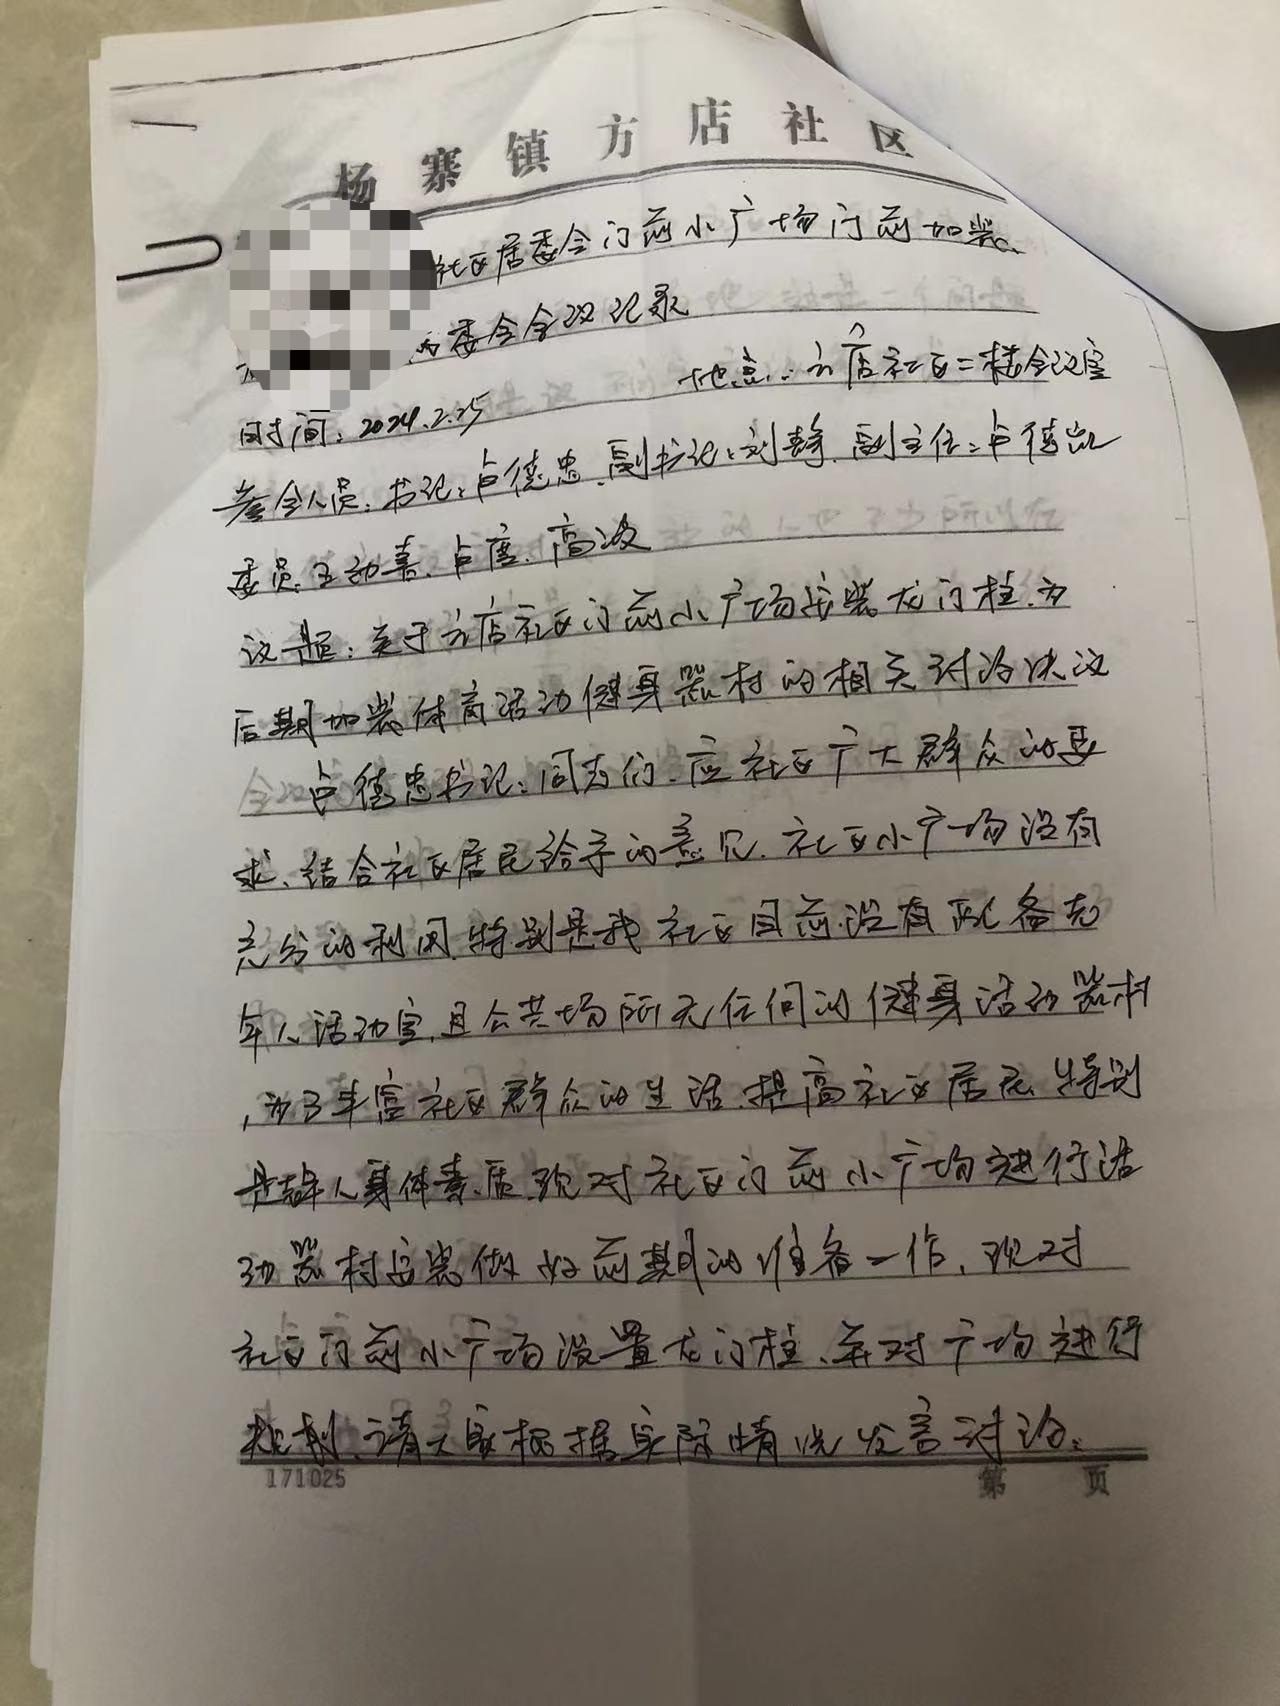 杨寨镇方店社区
社区居委会门前小广场门前加装、
两委会会议记录
时间：2024.2.25 地点：方店社区二楼会议室
参会人员：书记：卢德忠、副书记：刘静、副主任：卢德凯
委员：王动喜、卢唐、高波
议题：关于方店社区门前小广场安装龙门柱，为
后期加装体育活动健身器材的相关讨论决议
卢德忠书记：同志们、应社区广大群众的要
求、结合社区居民给予的意见、社区小广场没有
充分的利用，特别是我社区目前没有配备老
年人活动室，且公共场所无任何的健身活动器材
，为了丰富社区群众的生活、提高社区居民特别
是老年人身体素质，现对社区门前小广场进行活
动器材安装做好前期的准备工作，现对
社区门前小广场设置龙门柱、并对广场进行
规划，请大家根据实际情况发言讨论：
171025 第 页